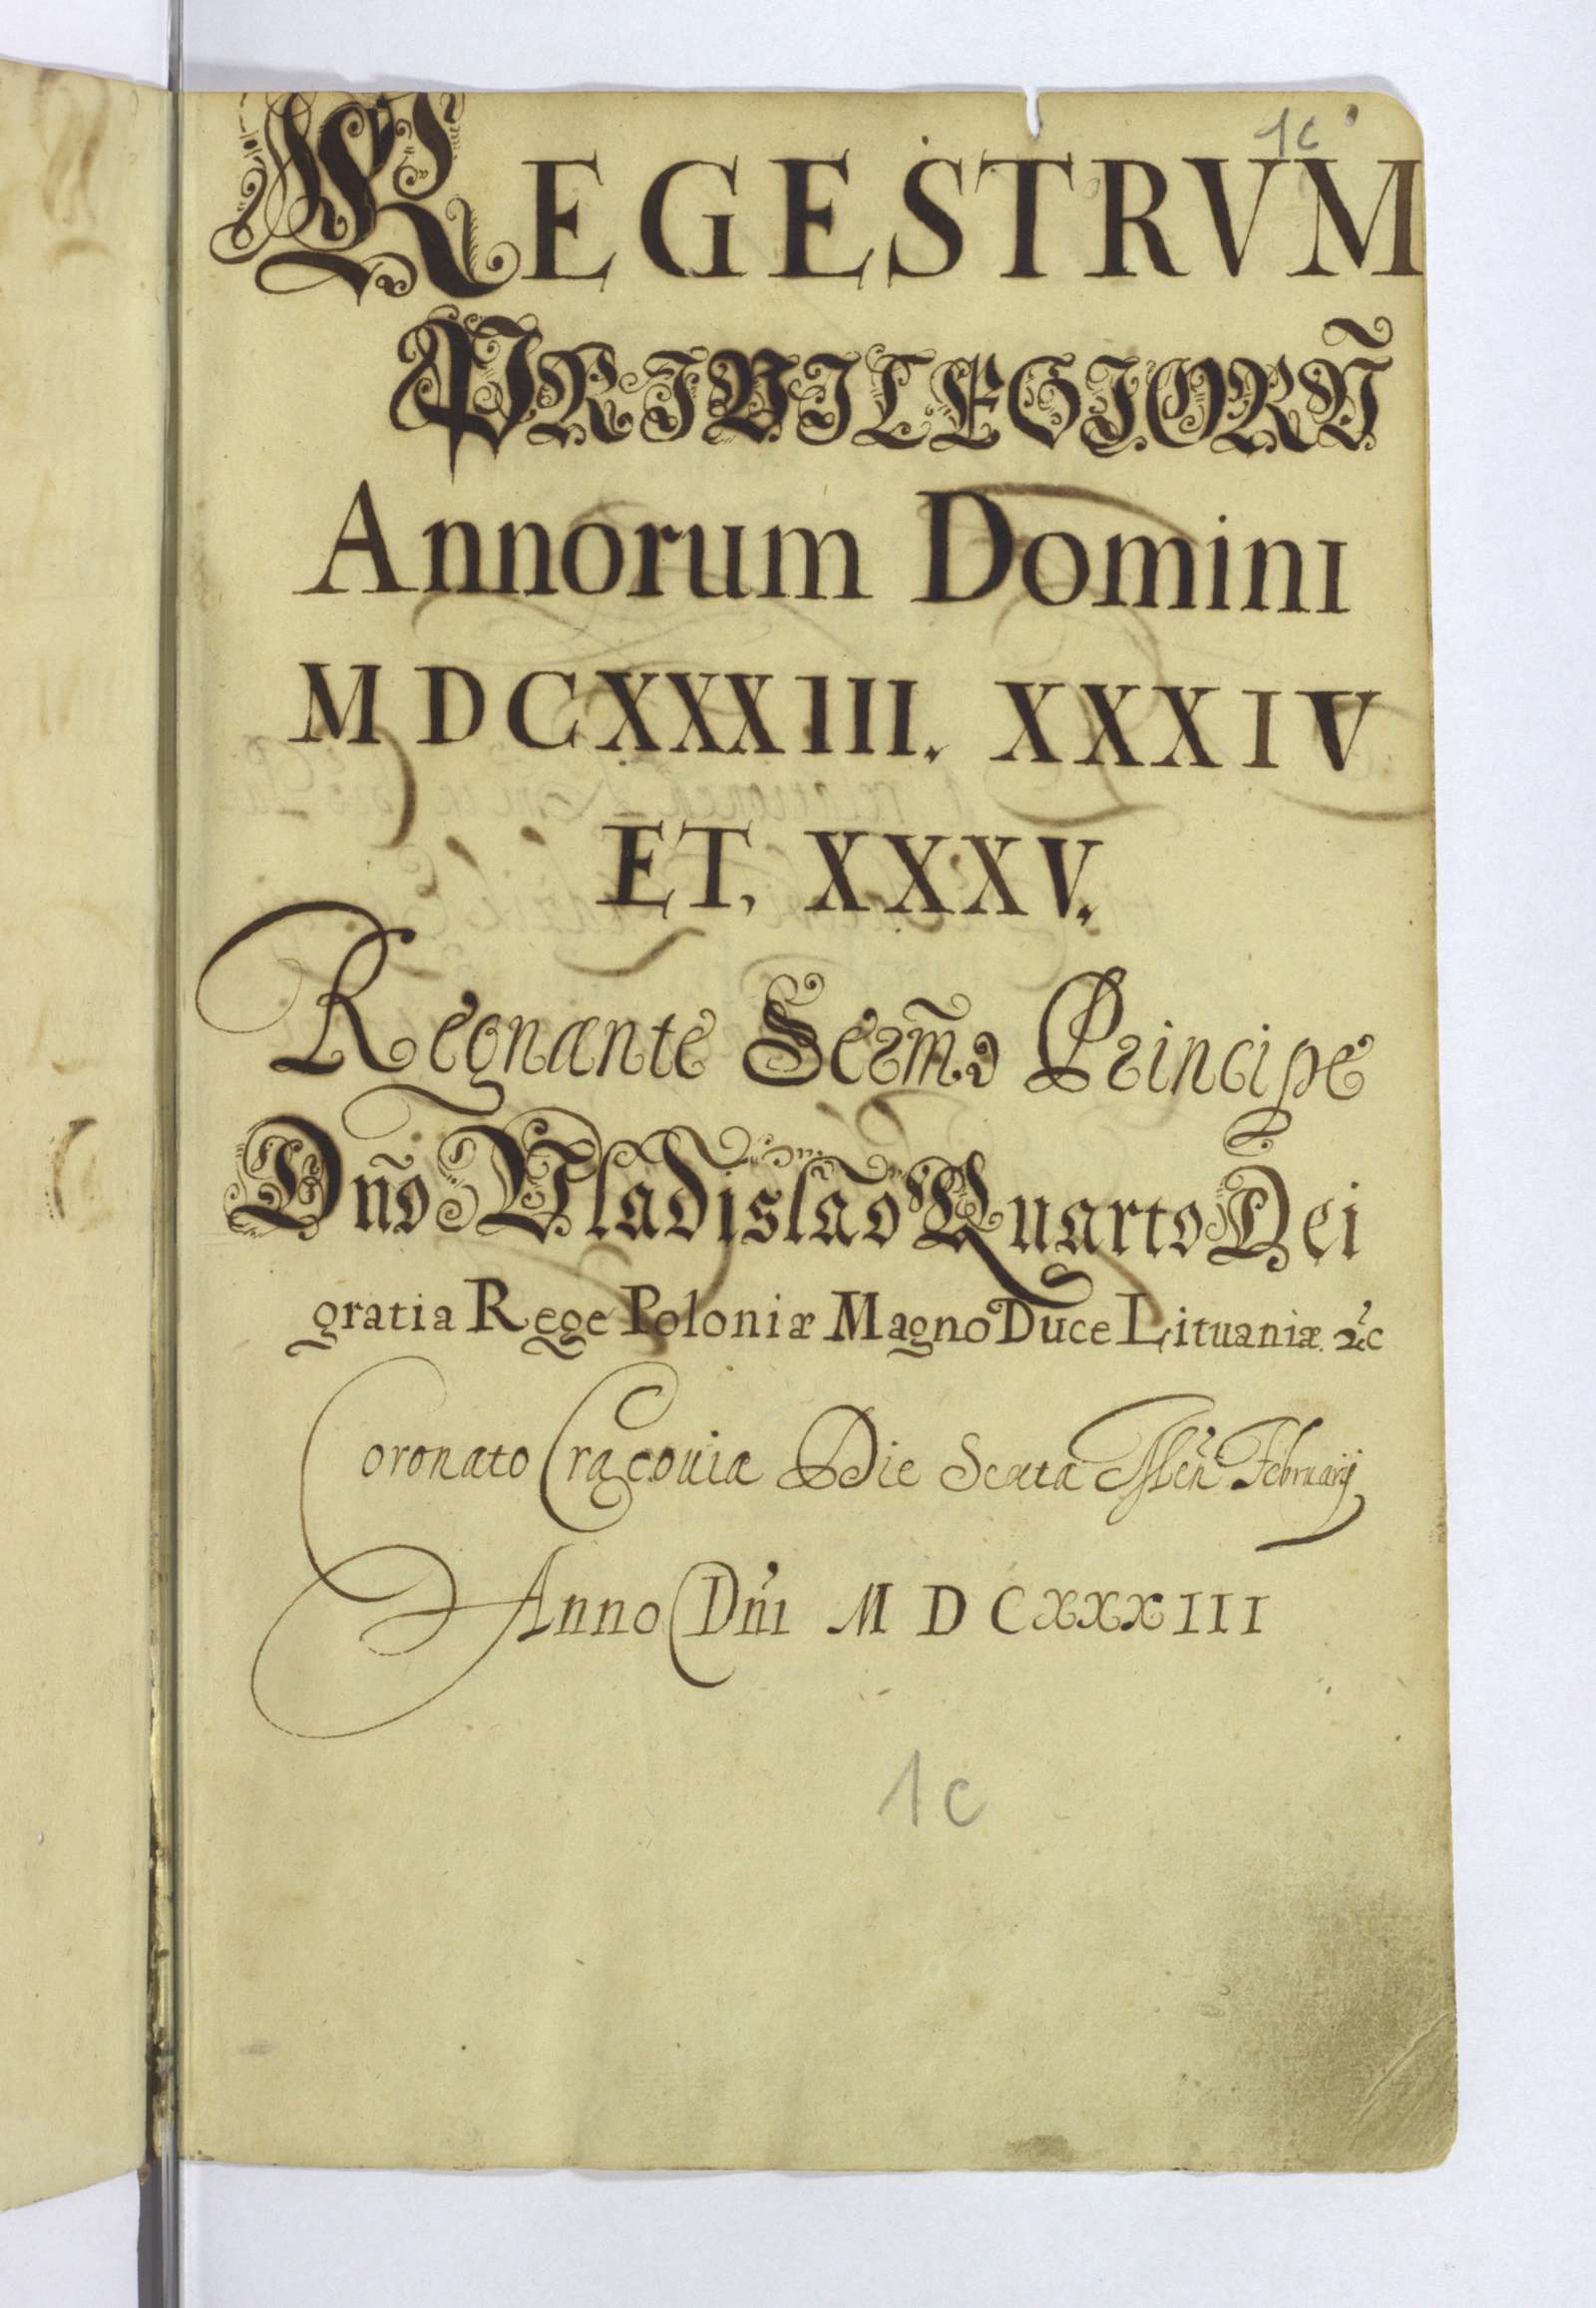 1c
REGESTRVM
PRIVILEGIORṼ
Annorum Domini
MDCXXXIII. XXXIV
ET, XXXV.
Regnante Serm̃o Principe
Dño Vladislao Quarto Dei
gratia Rege Poloniæ Magno Duce Lituaniæ &c
Coronato Cracouiæ Die Sexta Mẽn Februarij
Anno Dñi MDCXXXIII
1c